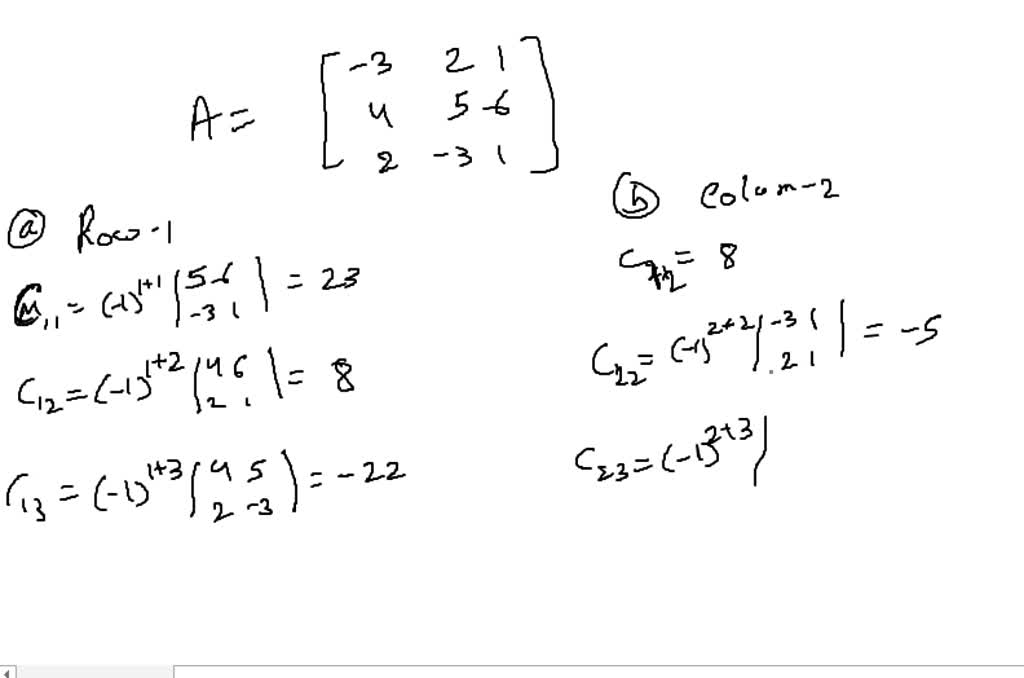 A = [ -3 2 1
4 5 6
2 -3 1 ]
ⓐ Row-1
C₁₁ = (-1)¹⁺¹ | 5 6
-3 1 | = 23
C₁₂ = (-1)¹⁺² | 4 6
2 1 | = 8
C₁₃ = (-1)¹⁺³ | 4 5
2 -3 | = -22
ⓑ Colum-2
= 8
C₂₂ = (-1)²⁺² | -3 1
2 1 | = -5
C₂₃ = (-1)²⁺³ |